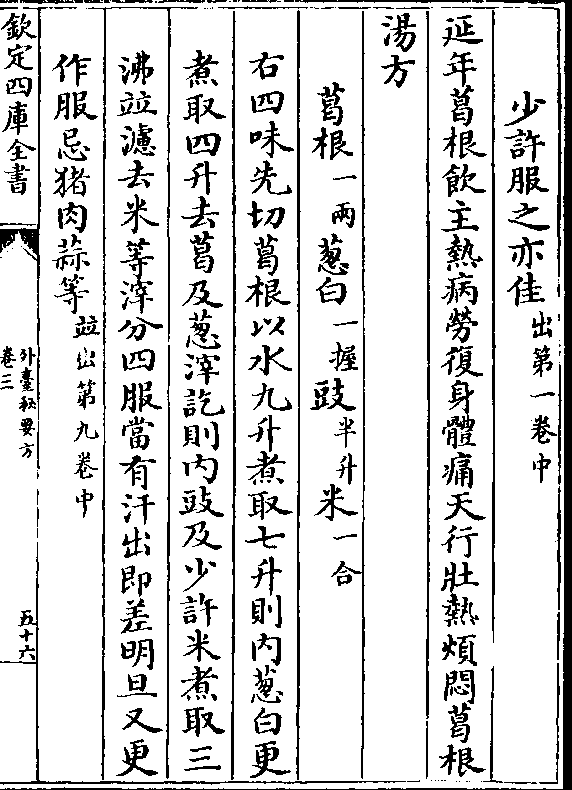 少許服之亦佳出第一卷中
延年葛根飲主熱病勞復身體痛天行壯熱煩悶葛根
湯方
葛根一兩葱白一握豉半升米一合
右四味先切葛根以水九升煮取七升則内葱白更
煮取四升去葛及葱滓訖則内豉及少許米煮取三
沸竝濾去米等滓分四服當有汗出即差明旦又更
作服忌猪肉蒜等竝出第九卷中
欽定四庫全書
外臺秘要方
卷三
五十六